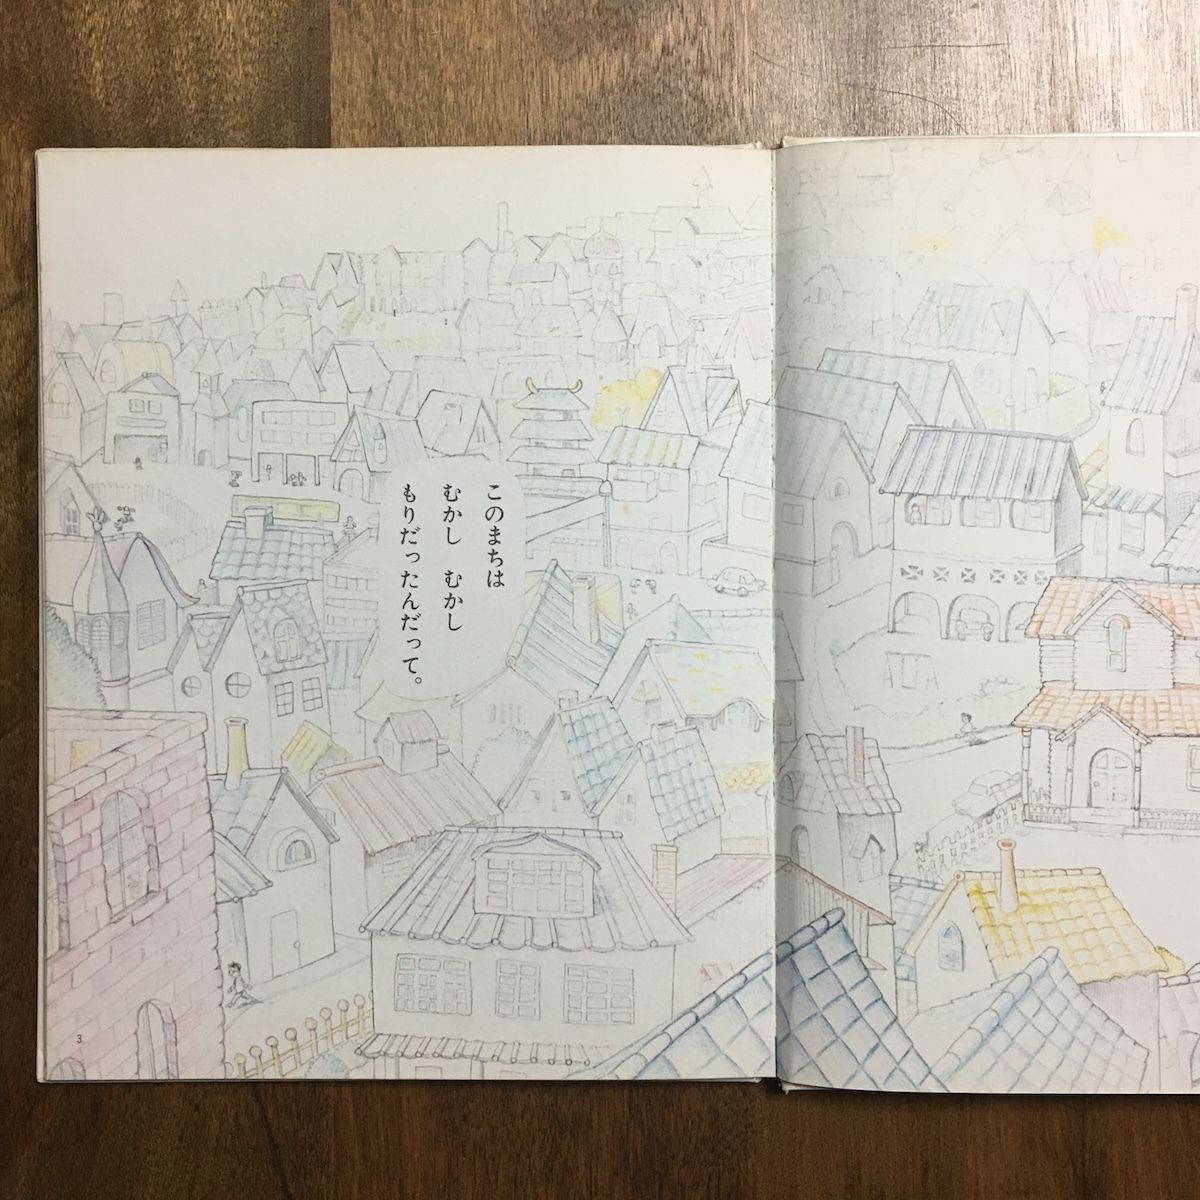 このまちは
むかし　むかし
もりだったんだって。
3